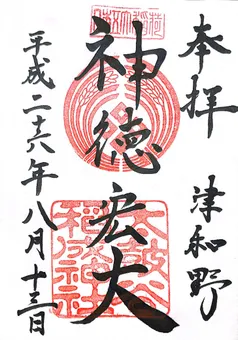 奉拝
津和野
神徳宏大
太皷谷
稲成神社
平成二十六年八月十三日